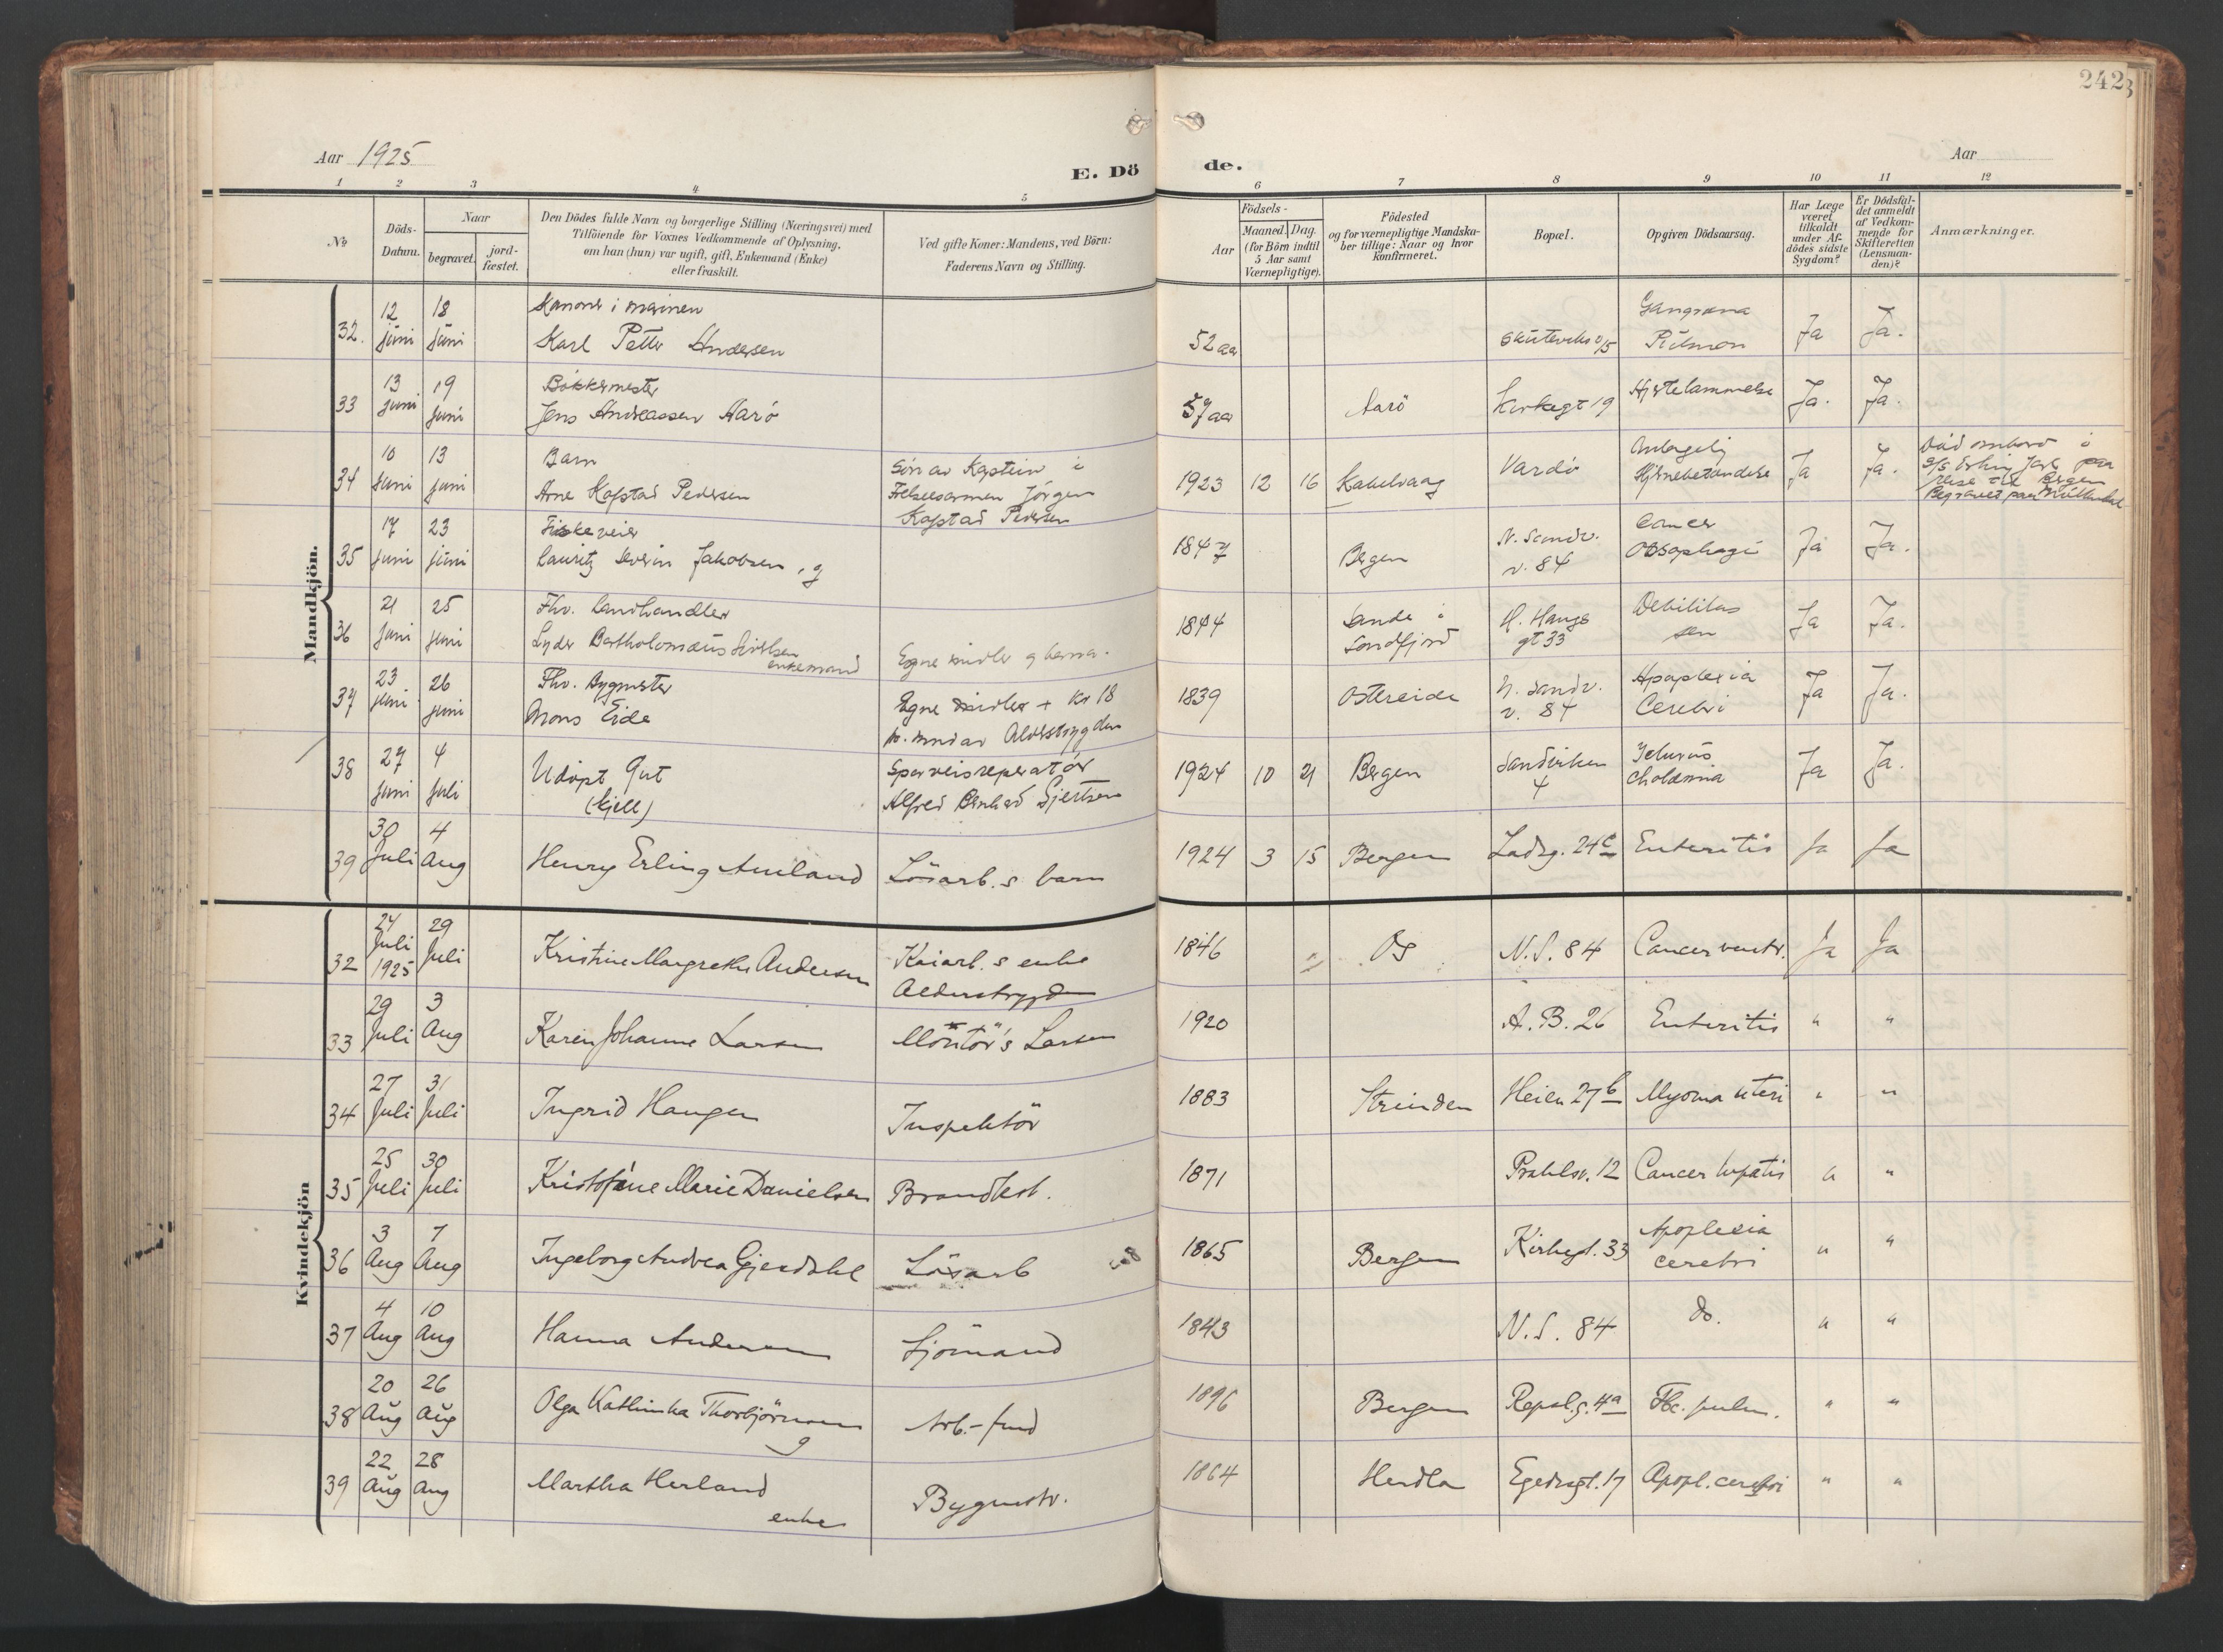 242
Aar 1925
E. Dö
de.
Aar
1 2 3 4 5 6 7 8 9 10 11 12
No
Döds-Datum.
Naar
begravet.
jordfæstet.
Den Dödes fulde Navn og borgerlige Stilling (Næringsvei) med
Tilföiende for Voxnes Vedkommende af Oplysning,
om han (hun) var ugift, gift, Enkemand (Enke)
eller fraskilt.
Ved gifte Koner: Mandens, ved Börn:
Faderens Navn og Stilling.
Födsels-
Aar
Maaned. Dag.
(for Börn indtil
5 Aar samt
Værnepligtige).
Födested
og for værnepligtige Mandskaber tillige: Naar og hvor
konfirmeret.
Bopæl.
Opgiven Dödsaarsag.
Har Læge været tilkaldt under Afdödes sidste Sygdom?
Er Dödsfaldet anmeldt af Vedkommende for Skifteretten (Lensmanden)?
Anmærkninger.
Mandkjön.
32. 12 juni 18 juni
Karl Petter Andersen 52 aar Ja Ja.
33 13 juni 19 juni Bökkermester
Jens Andreassen Aarö 57 aar Aarö Kirkegt 19 Hjertelammelse Ja. Ja.
34 10 juni 13 juni Barn
Arne Kofstad Pedersen Sön av Kaptein i
Frelsesarmen Jörgen
Kofstad Pedersen 1923 12 16 Kabelvaag Vardö Hjernebetændelse Ja Ja.
Död ombord i
S/S Erling Jarl paa
reise til Bergen
35 17 juni 23 juni
Lauritz Severin Jakobsen, g 1847 Bergen N. Sandv.
v. 84 Cancer
Oesophagi Ja Ja.
36 21 juni 25 juni Fhv. Landhandler
Lyder Bartholomæus
enkemand Egne midler 1844 Sande i
Söndfjord H. Haugs
gt 33 Debilitas
sen Ja Ja.
37 23 juni 26 juni Fhv. Bygmester
Mons Eide Egne midler + kr 18
Alderstrygden 1839 Ostereide N. Sandv.
v. 84 Apoplexia
Cerebri Ja Ja.
38 27 juni 4 juli Udöpt Gut
(Kjell) Sporveisreperatör
Alfred Bernhard Gjertsen 1924 10 21 Bergen Sandviken
4 Icterus Ja Ja.
39 30 Juli 4 Aug Henry Erling Lösarb.s barn 1924 3 15 Bergen Ladeg. 24c Enteritis Ja Ja
Kvindekjön
32 24 Juli 1925 29 Juli Kristine Margrethe Andersen Kaiarb.s enke
Alderstrygd 1846 Os N.S. 84 Cancer ventr. Ja Ja
33 29 Juli 3 Aug Karen Johanne Larsen Montör's Larsen 1920 A.B. 26 Enteritis " "
34 27 Juli 31 Juli Ingrid Haugen Inspektör 1883 Strinden Heien 27b Myoma uteri " "
35 25 Juli 30 Juli Kristofine Marie Danielsen Brandkst. 1871 12 Cancer hepatis " "
36 3 Aug 7 Aug Ingeborg Andrea Gjerdahl Lösarb 1865 Bergen Kirkegt. 33 Apoplexia
cerebri " "
37 4 Aug 10 Aug Hanna Andersen Sjömand 1843 N.S. 84 do. " "
38 20 Aug 26 Aug Olga Kathinka Thorbjörnsen
g 1896 Bergen Repsl.g. 4a Tbc. pulm. " "
39 22 Aug 28 Aug Martha Herland
enke Bygmstr. 1864 Herdla Egedesgt. 17 Apopl. cerebri " "